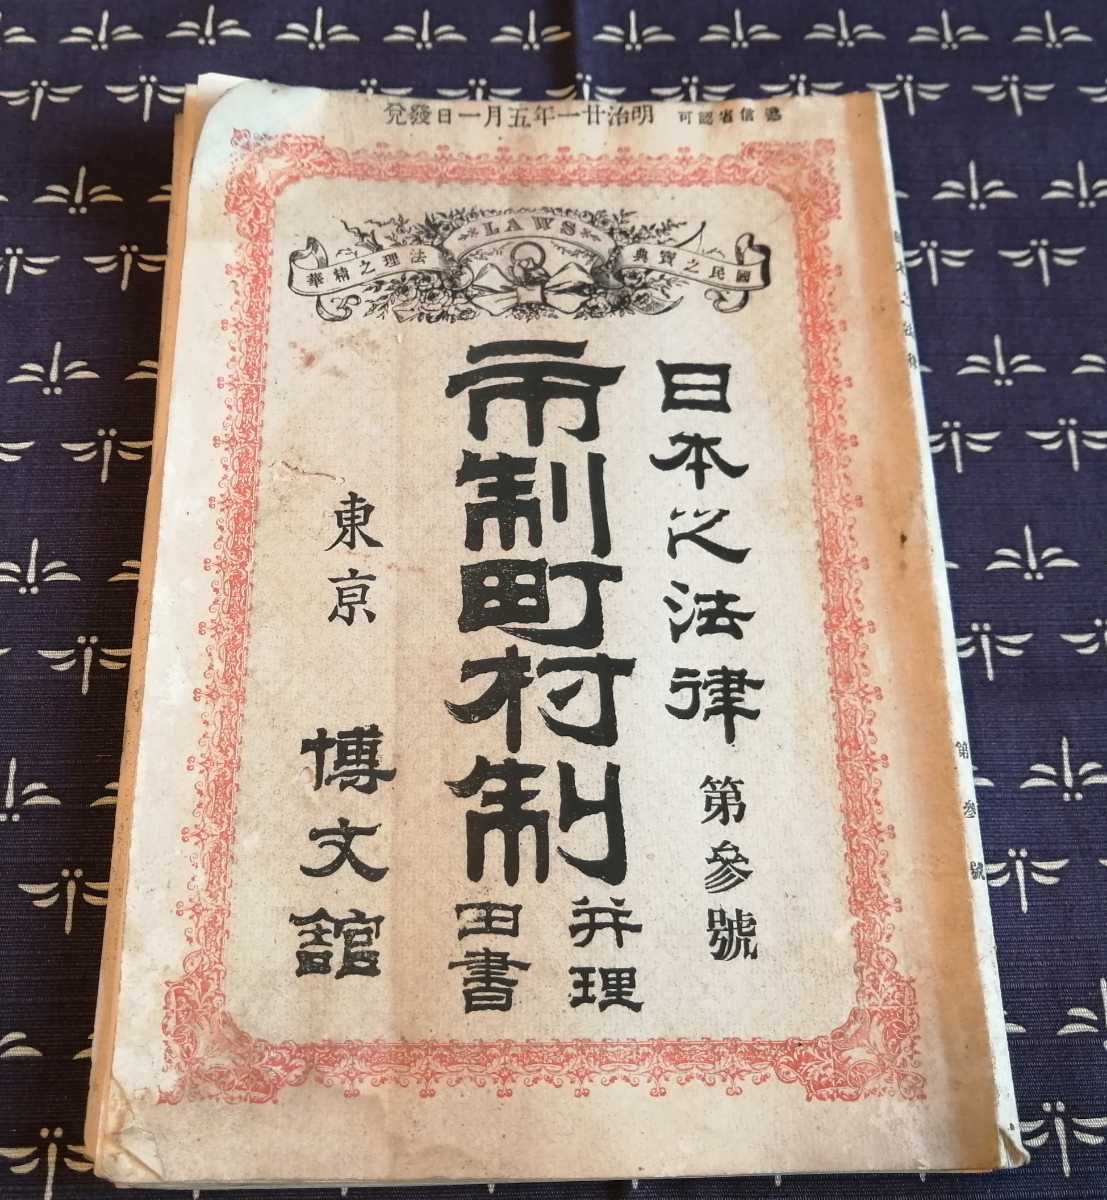 遞信省認可 明治廿一年五月一日發兌
LAWS
國民之寳典
法理之精華
日本之法律 第參號
市制町村制
并理
由書
東京 博文館
日本之法律
第參號